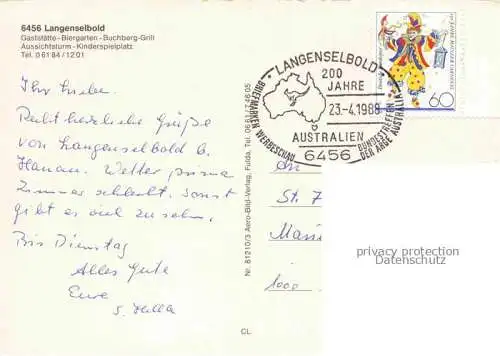 6456 Langenselbold
Gaststätte-Biergarten-Buchberg-Grill
Aussichtsturm-Kinderspielplatz
Tel. 06184/1201
Ihr Lieben.
Recht herzliche Grüße
von Langenselbold b.
Hanau. Wetter prima
Zimmer schlecht, sonst
gibt es viel zu sehen.
Bis Dienstag
Alles Gute
Eure
CL
Nr. 81210/3 Aero-Bild-Verlag, Fulda, Tel. 06 61/7 46 05
LANGENSELBOLD
200
JAHRE
23.-4.1988
AUSTRALIEN
6456
BRIEFMARKEN WERBESCHAU
BUNDESTREFFEN
DER ARGE AUSTRALIA
60
An
St.
1000
privacy protection
Datenschutz